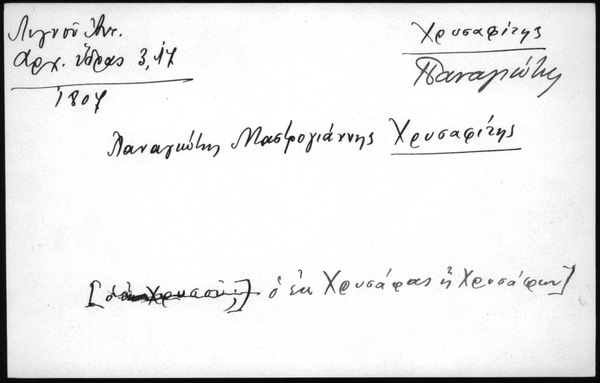 Λιγνοῦ Ἀντ.
Ἀρχ. Ὕδρας 3, 17
1807
Χρυσαφίτης
Παναγιώτης
Παναγιώτης Μαστρογιάννης Χρυσαφίτης
ὁ ἐκ Χρυσάφας ἢ Χρυσάφων]